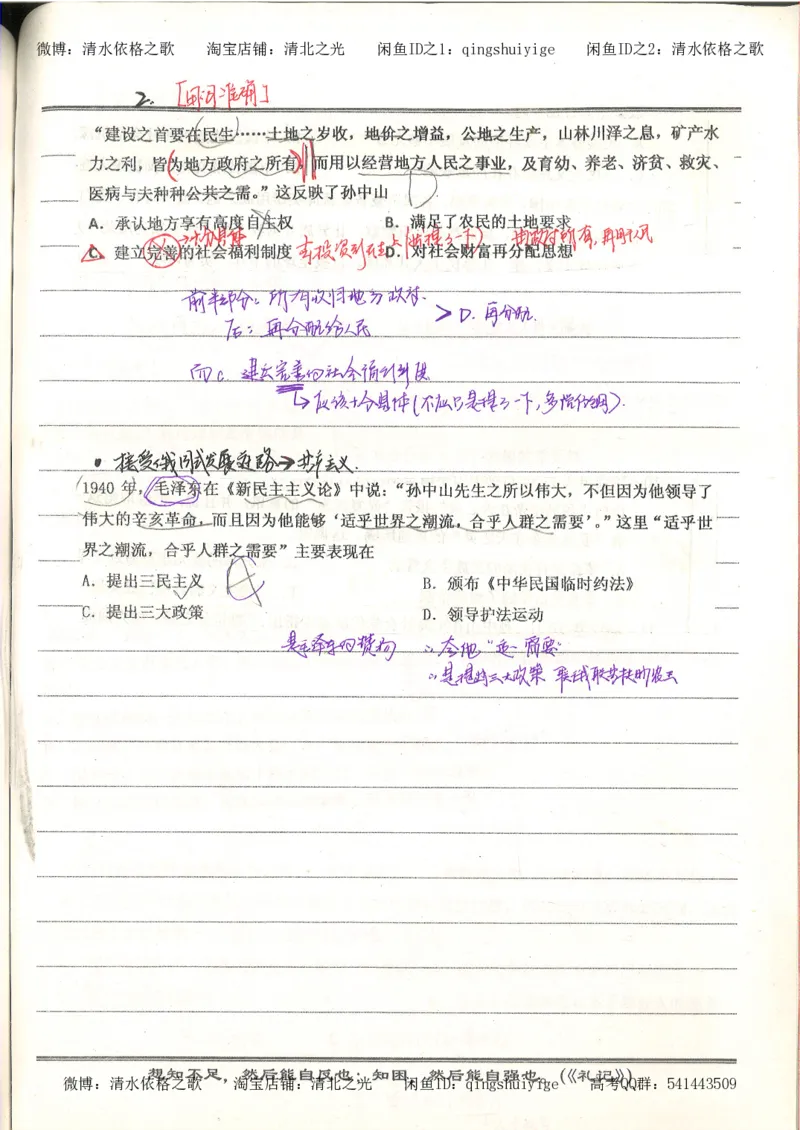 微博：清水依格之歌 淘宝店铺：清北之光 闲鱼ID之1：qingshuiyige 闲鱼ID之2：清水依格之歌
2. [用词准确]
“建设之首要在民生……土地之岁收，地价之增益，公地之生产，山林川泽之息，矿产水
力之利，皆为地方政府之所有，而用以经营地方人民之事业，及育幼、养老、济贫、救灾、
医病与夫种种公共之需。”这反映了孙中山 D
A．承认地方享有高度自主权 B．满足了农民的土地要求
→十分具体 (只提了一下) 再用于民
C．建立完善的社会福利制度 D．对社会财富再分配思想
前半部分：所有收归地方政府.
后：再分配给人民 > D. 再分配.
而C. 建立完善的社会福利制度
↳应该十分具体(不应只是提了一下,
• 接受俄国式发展道路→共产主义.
1940 年，毛泽东在《新民主主义论》中说：“孙中山先生之所以伟大，不但因为他领导了
伟大的辛亥革命，而且因为他能够‘适乎世界之潮流，合乎人群之需要’。”这里“适乎世
界之潮流，合乎人群之需要”主要表现在
A．提出三民主义 B．颁布《中华民国临时约法》
C．提出三大政策 D．领导护法运动
是毛泽东的赞扬 ∴ 需要”
∴是提出三大政策 联俄联共扶助农工
想知不足，然后能自反也；知困，然后能自强也。(《礼记》)
微博：清水依格之歌 淘宝店铺：清北之光 闲鱼ID之1：qingshuiyige 高考QQ群：541443509